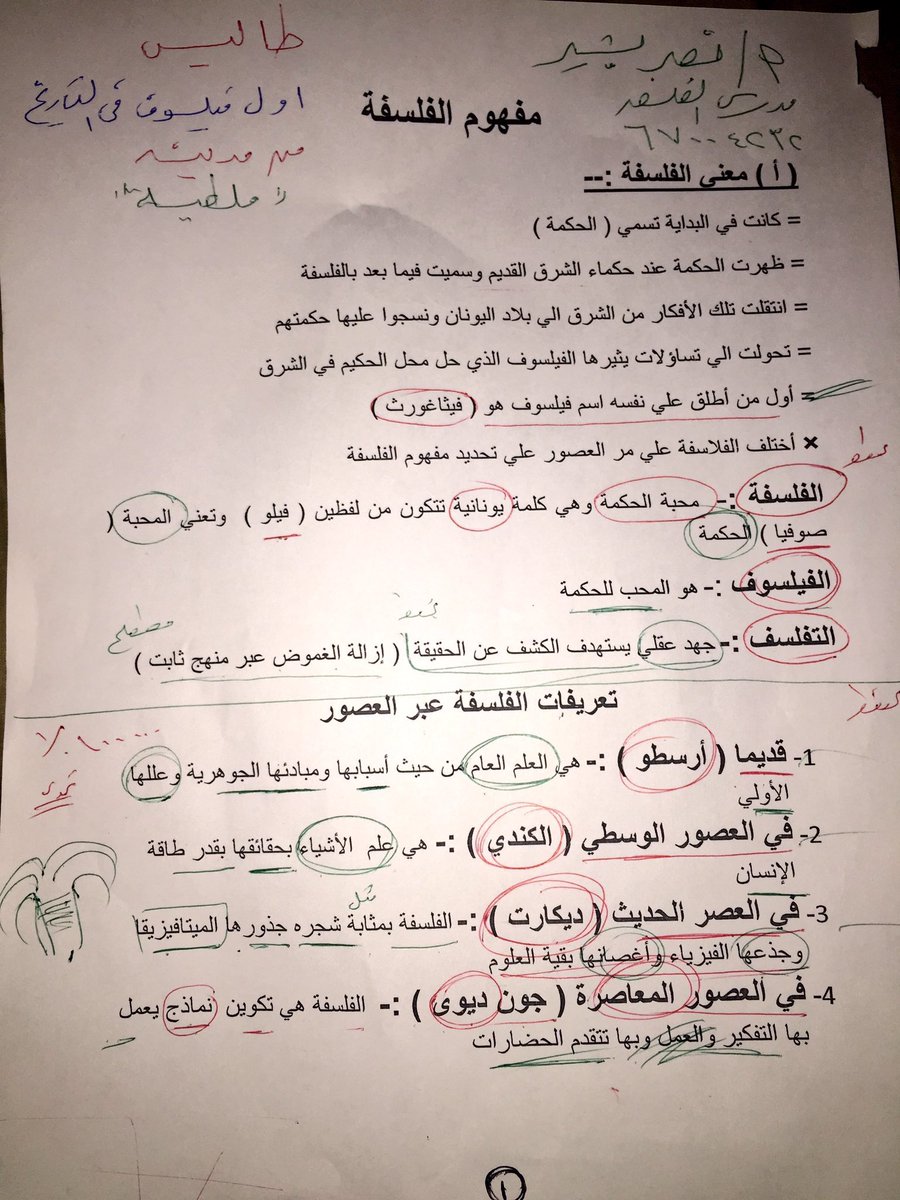 طاليس
اول فيلسوف في التاريخ
من مدينة
ملطية
أ/ نصر بشير
مدرس الفلسفة
٦٧٠٠٤٢٣٢
مفهوم الفلسفة
( أ ) معني الفلسفة :--
= كانت في البداية تسمي ( الحكمة )
= ظهرت الحكمة عند حكماء الشرق القديم وسميت فيما بعد بالفلسفة
= انتقلت تلك الأفكار من الشرق الي بلاد اليونان ونسجوا عليها حكمتهم
= تحولت الي تساؤلات يثيرها الفيلسوف الذي حل محل الحكيم في الشرق
= أول من أطلق علي نفسه اسم فيلسوف هو ( فيثاغورث )
× أختلف الفلاسفة علي مر العصور علي تحديد مفهوم الفلسفة
الفلسفة :- محبة الحكمة وهي كلمة يونانية تتكون من لفظين ( فيلو ) وتعني المحبة (
صوفيا ) الحكمة
الفيلسوف :- هو المحب للحكمة
مصطلح
التفلسف :- جهد عقلي يستهدف الكشف عن الحقيقة ( إزالة الغموض عبر منهج ثابت )
تعريفات الفلسفة عبر العصور
1- قديما ( أرسطو ) :- هي العلم العام من حيث أسبابها ومبادئها الجوهرية وعللها
الأولي
2- في العصور الوسطي ( الكندي ) :- هي علم الأشياء بحقائقها بقدر طاقة
الإنسان
مثل
3- في العصر الحديث ( ديكارت ) :- الفلسفة بمثابة شجره جذورها الميتافيزيقا
وجذعها الفيزياء وأغصانها بقية العلوم
4- في العصور المعاصرة ( جون ديوى ) :- الفلسفة هي تكوين نماذج يعمل
بها التفكير والعمل وبها تتقدم الحضارات
١